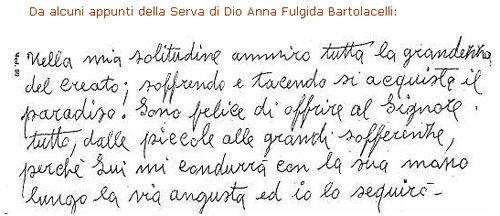 Da alcuni appunti della Serva di Dio Anna Fulgida Bartolacelli:
Nella mia solitudine ammiro tutta la grandezza
del creato; soffrendo e tacendo si acquista il
paradiso. Sono felice di offrire al Signore
tutto, dalle piccole alle grandi sofferenze,
perchè Lui mi condurrà con la sua mano
lungo la via angusta ed io lo seguirò-